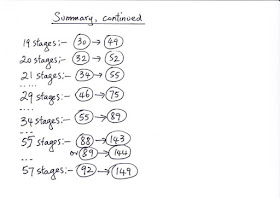 Summary, continued
19 stages:- 30 → 49
20 stages:- 32 → 52
21 stages:- 34 → 55
.....
29 stages:- 46 → 75
....
34 stages:- 55 → 89
....
55 stages:- 88 → 143
... or 89 → 144
57 stages:- 92 → 149